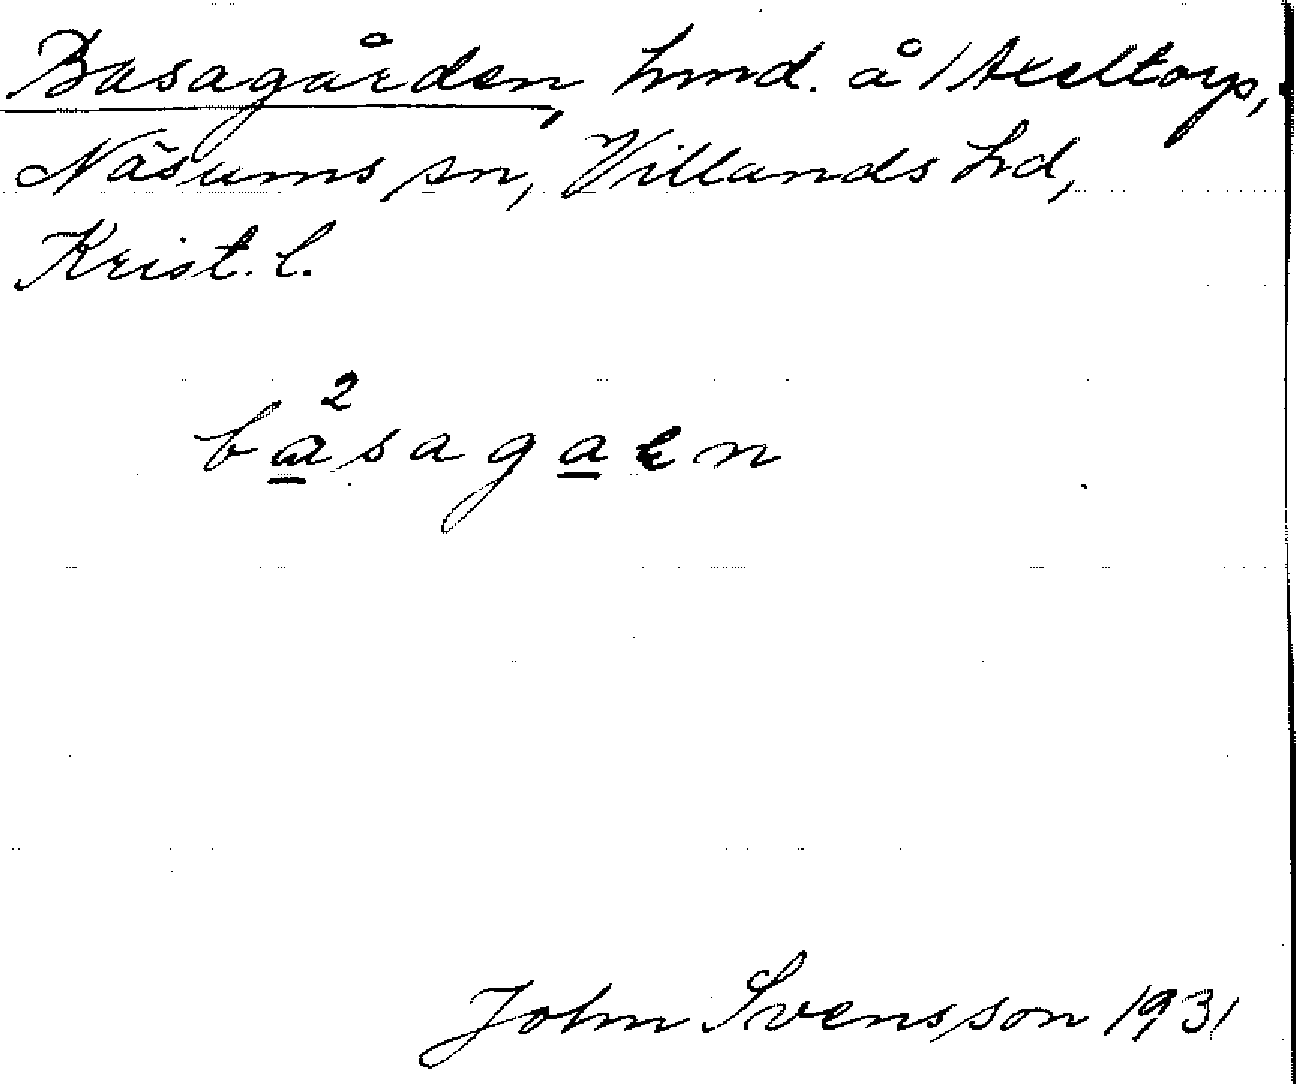 Basagården, hmd. å 1 Axeltorp,
Näsums sn, Villands hd,
Krist. l.
2
basagaen
John Svensson 1931